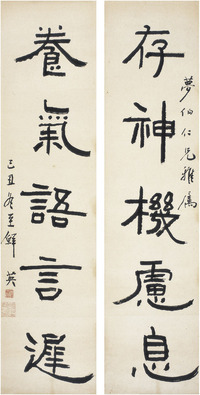 存神機慮息
夢伯仁兄雅屬
養氣語言遲
己丑冬至鮮英